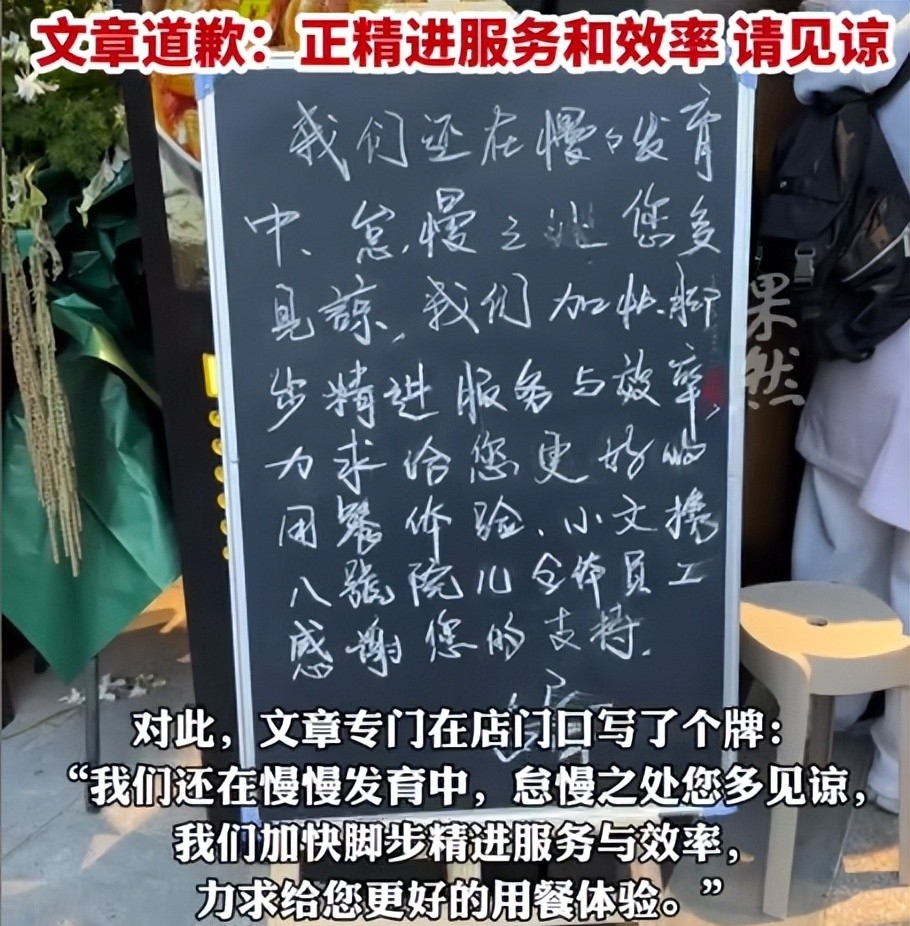 文章道歉：正精进服务和效率 请见谅
我们还在慢々发育
中、怠慢之处您多
見諒，我们加快脚
步精进服务与效率，
力求给您更好的
用餐体验、小文携
八號院儿全体员工
感谢您的支持.
果然
对此，文章专门在店门口写了个牌：
“我们还在慢慢发育中，怠慢之处您多见谅，
我们加快脚步精进服务与效率，
力求给您更好的用餐体验。”